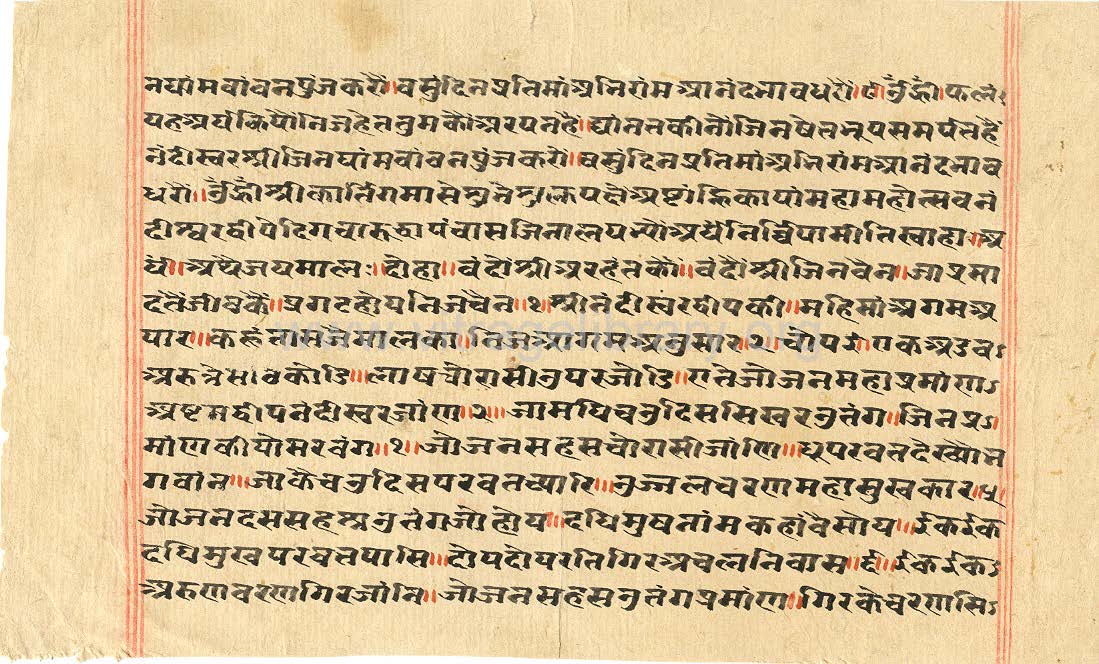 नधांमबांवनपुंजकरौं॥वसुंदिनप्रतिमांअभिरांमआनंदभावधरौं॥८॥उँह्रीं।फलं॥
यहअर्घकियौनिजहेततुमकौंअरपतहैं॥द्यांनतकीनौंजिनषेतभूपसमर्पतहैं
नंदीस्वरश्रीजिनधांमबांवनपुंजकरौं॥बसुंदिनप्रतिमांअभिरांमआनंदभाव
धरौं॥उँह्रीं।श्रीकार्तिगमासेसुभेसुक्लपक्षेअष्टांह्निकायांमहामहोत्सवनं
दीश्वरद्वीपेदिगचारूत्रापंचासजिनालयभ्योअर्घंनिर्विपामीतिस्वाहा॥अ
र्घं॥अथजयमाल॥दोहा॥वंदौंश्रीअरहंतकौं॥वंदौंश्रीजिनवैन॥जाप्रसा
दतैंजीवकै॥प्रगटहोयनिजचैन॥१॥श्रीनंदीस्वरद्वीपकी॥महिमांअगमअ
पार॥कहूंतासजैमालका॥निजआगमअनुसार॥२॥चौपई॥एकअडव
अरुत्रेसठिकोडि॥लाषचौरासीउपरजोडि॥एतेजोजनमहाप्रमांण
अष्टमद्वीपनंदीस्वरजांण॥३॥जामधिचउदिससिखरउतंग॥जिनप्र
मांणकीयोसरवंग॥४॥जोजनसहसचौरासीजांणि॥धुपरवतदेख्यौभ
गवांन॥जाकैचउदिसपरवतच्यारि॥उज्जलवरणमहासुखकार॥५॥
जोजनदससहस्रउतंगजोहोय॥दधिमुषनांमकहावैसोय॥ईकईक
दधिमुखपरवतपासि॥दोयदोयरतिगिरअचलनिवास॥६॥ईकईक
अरुणवरणगिरजांनि॥जोजनसहसउतंगप्रमांण॥गिरकेवरणसि